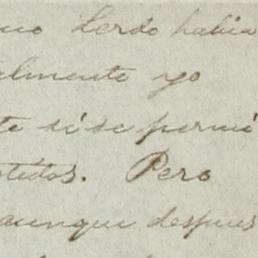 Lerdo habia
elmente yo
te si se permi
stedos. Pero
aunque despues